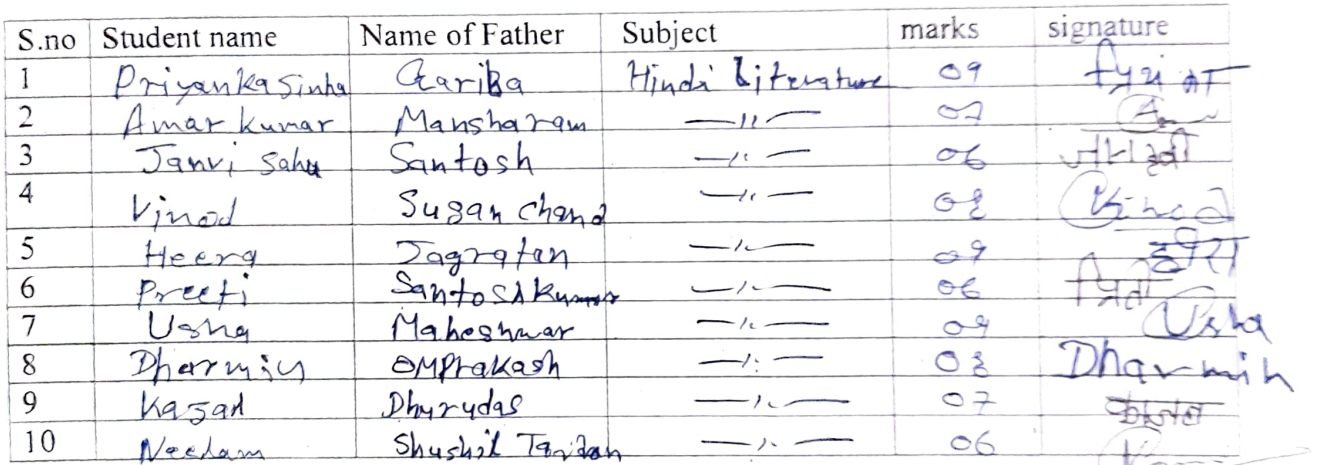 S.no Student name Name of Father Subject marks signature
1 Priyanka Sinha Gariba Hindi Literature 09
2 Amar kumar Mansharam —〃— 07
3 Janvi Sahu Santosh —〃— 06
4 Vinod Sugan Chand —〃— Vinod
5 Heera Jagratan —〃— हीरा
6 Preeti Santosh Kumar —〃— 06
7 Usha Maheshwar —〃— 09 Usha
8 Dharmin OMPrakash —〃— Dharmin
9 Kajal Dhurudas —〃— 07 काजल
10 Neelam Shushil Tandan —〃— 06